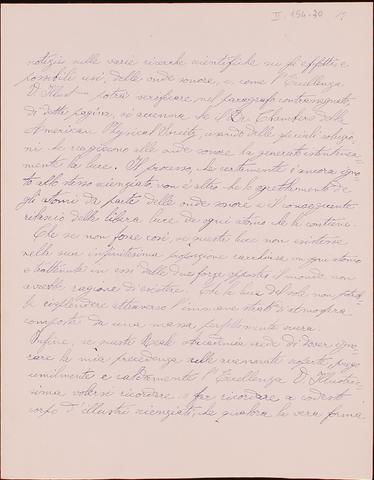 II. 154-70
notizie sulle varie ricerche scientifiche sugli effetti e
possibili usi, delle onde sonore, e, come l'Eccellenza
V. Illust potrà verificare nel paragrafo contrassegnato
di detta pagina, si accenna che il Dr Chambers della
American Physical Society, usando delle speciali soluzio-
ni che reagiscono alle onde sonore ha generato istantanea-
mente la luce. Il processo, che certamente è ancora igno-
to allo stesso scienziato, non è altro che lo spezzamento de
gli atomi da parte delle onde sonore e il conseguente
rilascio della libera luce da ogni atomo che la contiene.
Che se non fosse così, se questa luce non esistesse
nella sua infinitesima proporzione racchiusa in ogni atomo
e trattenuta in essi dalle due forze opposte il mondo non
avrebbe ragione di esistere. Che la luce del sole non potreb
be risplendere attraverso l'immane strato di atmosfera
composta da una massa perfettamente nera.
Infine, se questa Reale Accademia vede di dover igno-
rare la mia precedenza sulle accennate scoperte, prego
umilmente e caldamente l'Eccellenza V. Illustris-
sima volersi ricordare e far ricordare a codesto
corpo d'illustri scienziati, che qualora la vera forma